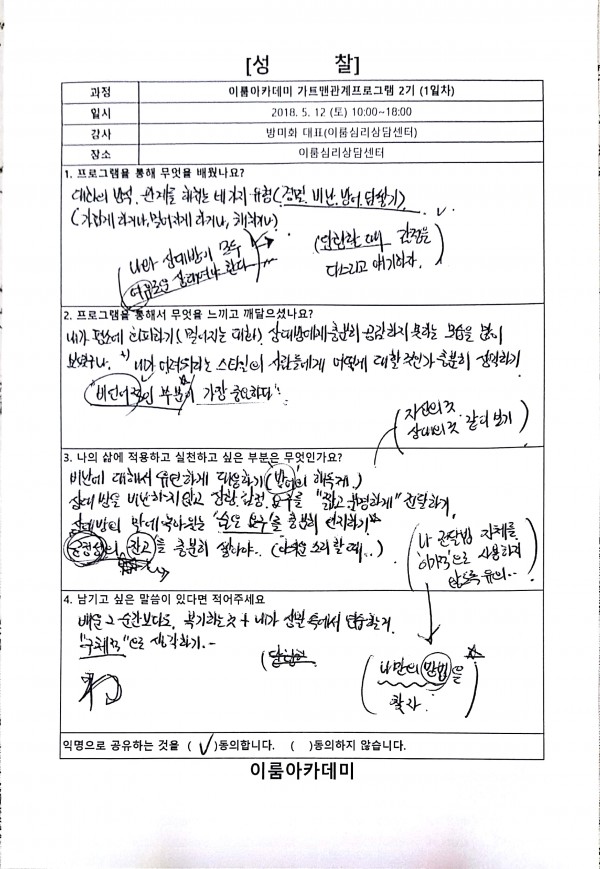 [성 찰]
과정 이룸아카데미 가트맨관계프로그램 2기 (1일차)
일시 2018. 5. 12 (토) 10:00~18:00
강사 방미화 대표(이룸심리상담센터)
장소 이룸심리상담센터
1. 프로그램을 통해 무엇을 배웠나요?
대화의 방법, 관계를 해치는 네가지 유형 (경멸, 비난, 방어, 담쌓기)
(가깝게 하거나, 멀어지게 하거나, 해치거나)
나와 상대방이 모두
여유로운 상태여야 한다
답답할 때 감정을
다스리고 얘기하자.
2. 프로그램을 통해서 무엇을 느끼고 깨달으셨나요?
내가 평소에 회피하기 (멀어지는 대화), 상대방에게 충분히 공감하지 못하는 모습을 많이
보였구나. 내가 어려워하는 스타일의 사람들에게 어떻게 대할 것인가 충분히 생각하기
"비언어적인 부분이 가장 중요하다".
자신의 것
상대의 것 같이 보기
3. 나의 삶에 적용하고 실천하고 싶은 부분은 무엇인가요?
비난에 대해서 유연하게 대응하기 (방어의 해독제.)
상대방을 비난하지 않고 상황, 감정, 요구를 "짧고 분명하게" 전달하기
상대방의 말에 녹아있는 "숨은 욕구"를 충분히 인지하기
긍정성의 잔고를 충분히 쌓아야.. (아쉬운 소리 할 때..)
나 전달법 자체를
'이기적'으로 사용하지
않도록 유의..
4. 남기고 싶은 말씀이 있다면 적어주세요
배운 그 순간보다도, 복기하는 것 + 내가 신분 속에서 연습할 것.
"구체적"으로 생각하기..
나만의 방법을
찾자.
익명으로 공유하는 것을 ( ✓ )동의합니다. ( )동의하지 않습니다.
이룸아카데미